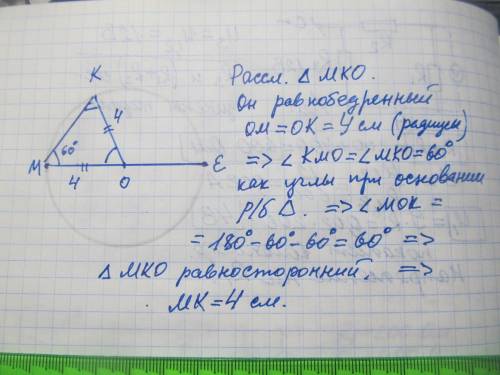 K
4
60°
M
4
O
E
Рассм. △ MKO.
Он равнобедренный
OM=OK=4 см (радиусы)
=> ∠KMO=∠MKO=60°
как углы при основании
р/б △. => ∠MOK =
= 180°-60°-60°=60° =>
△ MKO равносторонний =>
MK=4 см.